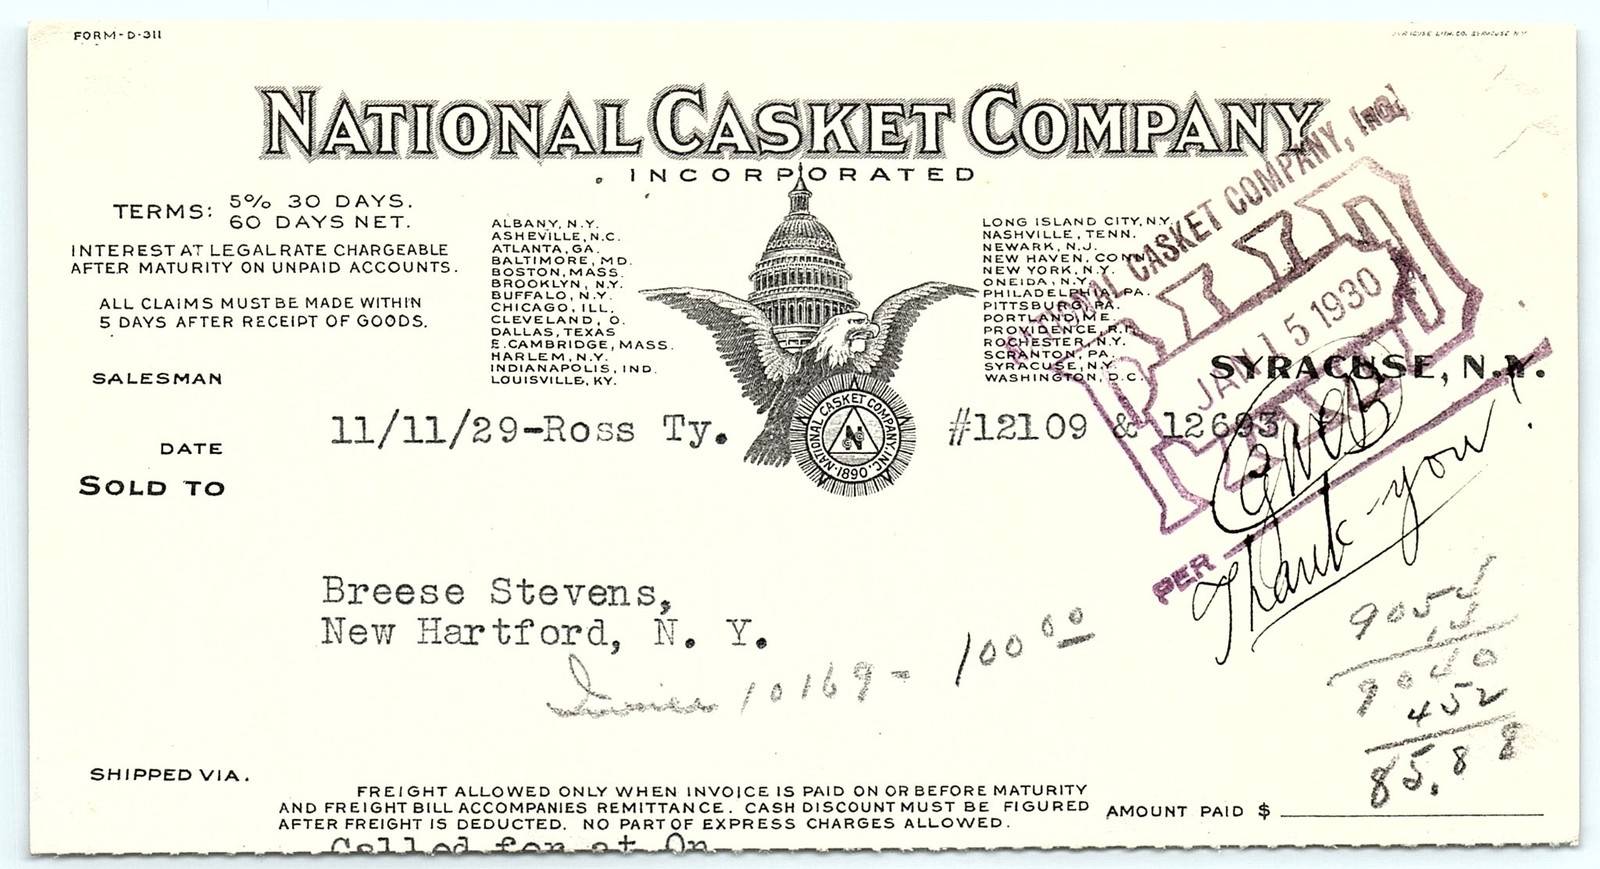 FORM-D-311
SYRACUSE LITH. CO. SYRACUSE N.Y.
NATIONAL CASKET COMPANY
INCORPORATED
TERMS: 5% 30 DAYS.
60 DAYS NET.
INTEREST AT LEGAL RATE CHARGEABLE
AFTER MATURITY ON UNPAID ACCOUNTS.
ALL CLAIMS MUST BE MADE WITHIN
5 DAYS AFTER RECEIPT OF GOODS.
ALBANY, N.Y.
ASHEVILLE, N.C.
ATLANTA, GA.
BALTIMORE, MD.
BOSTON, MASS.
BROOKLYN, N.Y.
BUFFALO, N.Y.
CHICAGO, ILL.
CLEVELAND, O.
DALLAS, TEXAS
E. CAMBRIDGE, MASS.
HARLEM, N.Y.
INDIANAPOLIS, IND.
LOUISVILLE, KY.
LONG ISLAND CITY, N.Y.
NASHVILLE, TENN.
NEWARK, N.J.
NEW HAVEN, CONN.
NEW YORK, N.Y.
ONEIDA, N.Y.
PHILADELPHIA, PA.
PITTSBURG, PA.
PORTLAND, ME.
PROVIDENCE, R.I.
ROCHESTER, N.Y.
SCRANTON, PA.
SYRACUSE, N.Y.
WASHINGTON, D.C.
NATIONAL CASKET COMPANY, INC.
PAID
JAN 15 1930
PER
Thank-you
SYRACUSE, N.Y.
NATIONAL CASKET COMPANY, INC.
N
1890
SALESMAN
DATE
11/11/29-Ross Ty.
#12109 & 12693
SOLD TO
Breese Stevens,
New Hartford, N. Y.
Invoice 10169 - 100 00
9040
452
85.88
SHIPPED VIA.
FREIGHT ALLOWED ONLY WHEN INVOICE IS PAID ON OR BEFORE MATURITY
AND FREIGHT BILL ACCOMPANIES REMITTANCE. CASH DISCOUNT MUST BE FIGURED
AFTER FREIGHT IS DEDUCTED. NO PART OF EXPRESS CHARGES ALLOWED.
AMOUNT PAID $
Called for at On